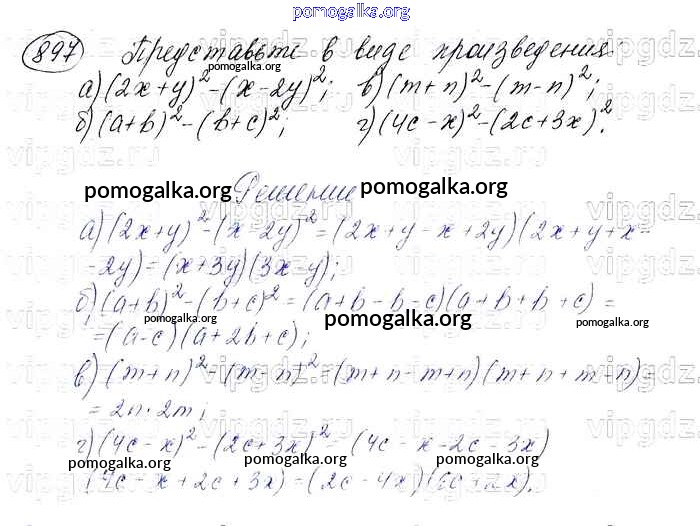 pomogalka.org
897 Представьте в виде произведения:
pomogalka.org pomogalka.org
а) (2x+y)²-(x-2y)²; в) (m+n)²-(m-n)²;
б) (a+b)²-(b+c)²; г) (4c-x)²-(2c+3x)².
pomogalka.org Решение pomogalka.org
а) (2x+y)²-(x-2y)²=(2x+y-x+2y)(2x+y+x-
-2y)=(x+3y)(3x-y);
б) (a+b)²-(b+c)²=(a+b-b-c)(a+b+b+c)=
pomogalka.org pomogalka.org pomogalka.org
=(a-c)(a+2b+c);
в) (m+n)²-(m-n)²=(m+n-m+n)(m+n+m-n)=
=2n·2m;
г) (4c-x)²-(2c+3x)² (4c-x-2c-3x)
pomogalka.org pomogalka.org pomogalka.org
(4c-x+2c+3x)=(2c-4x)(6c+2x).
vipgdz.ru